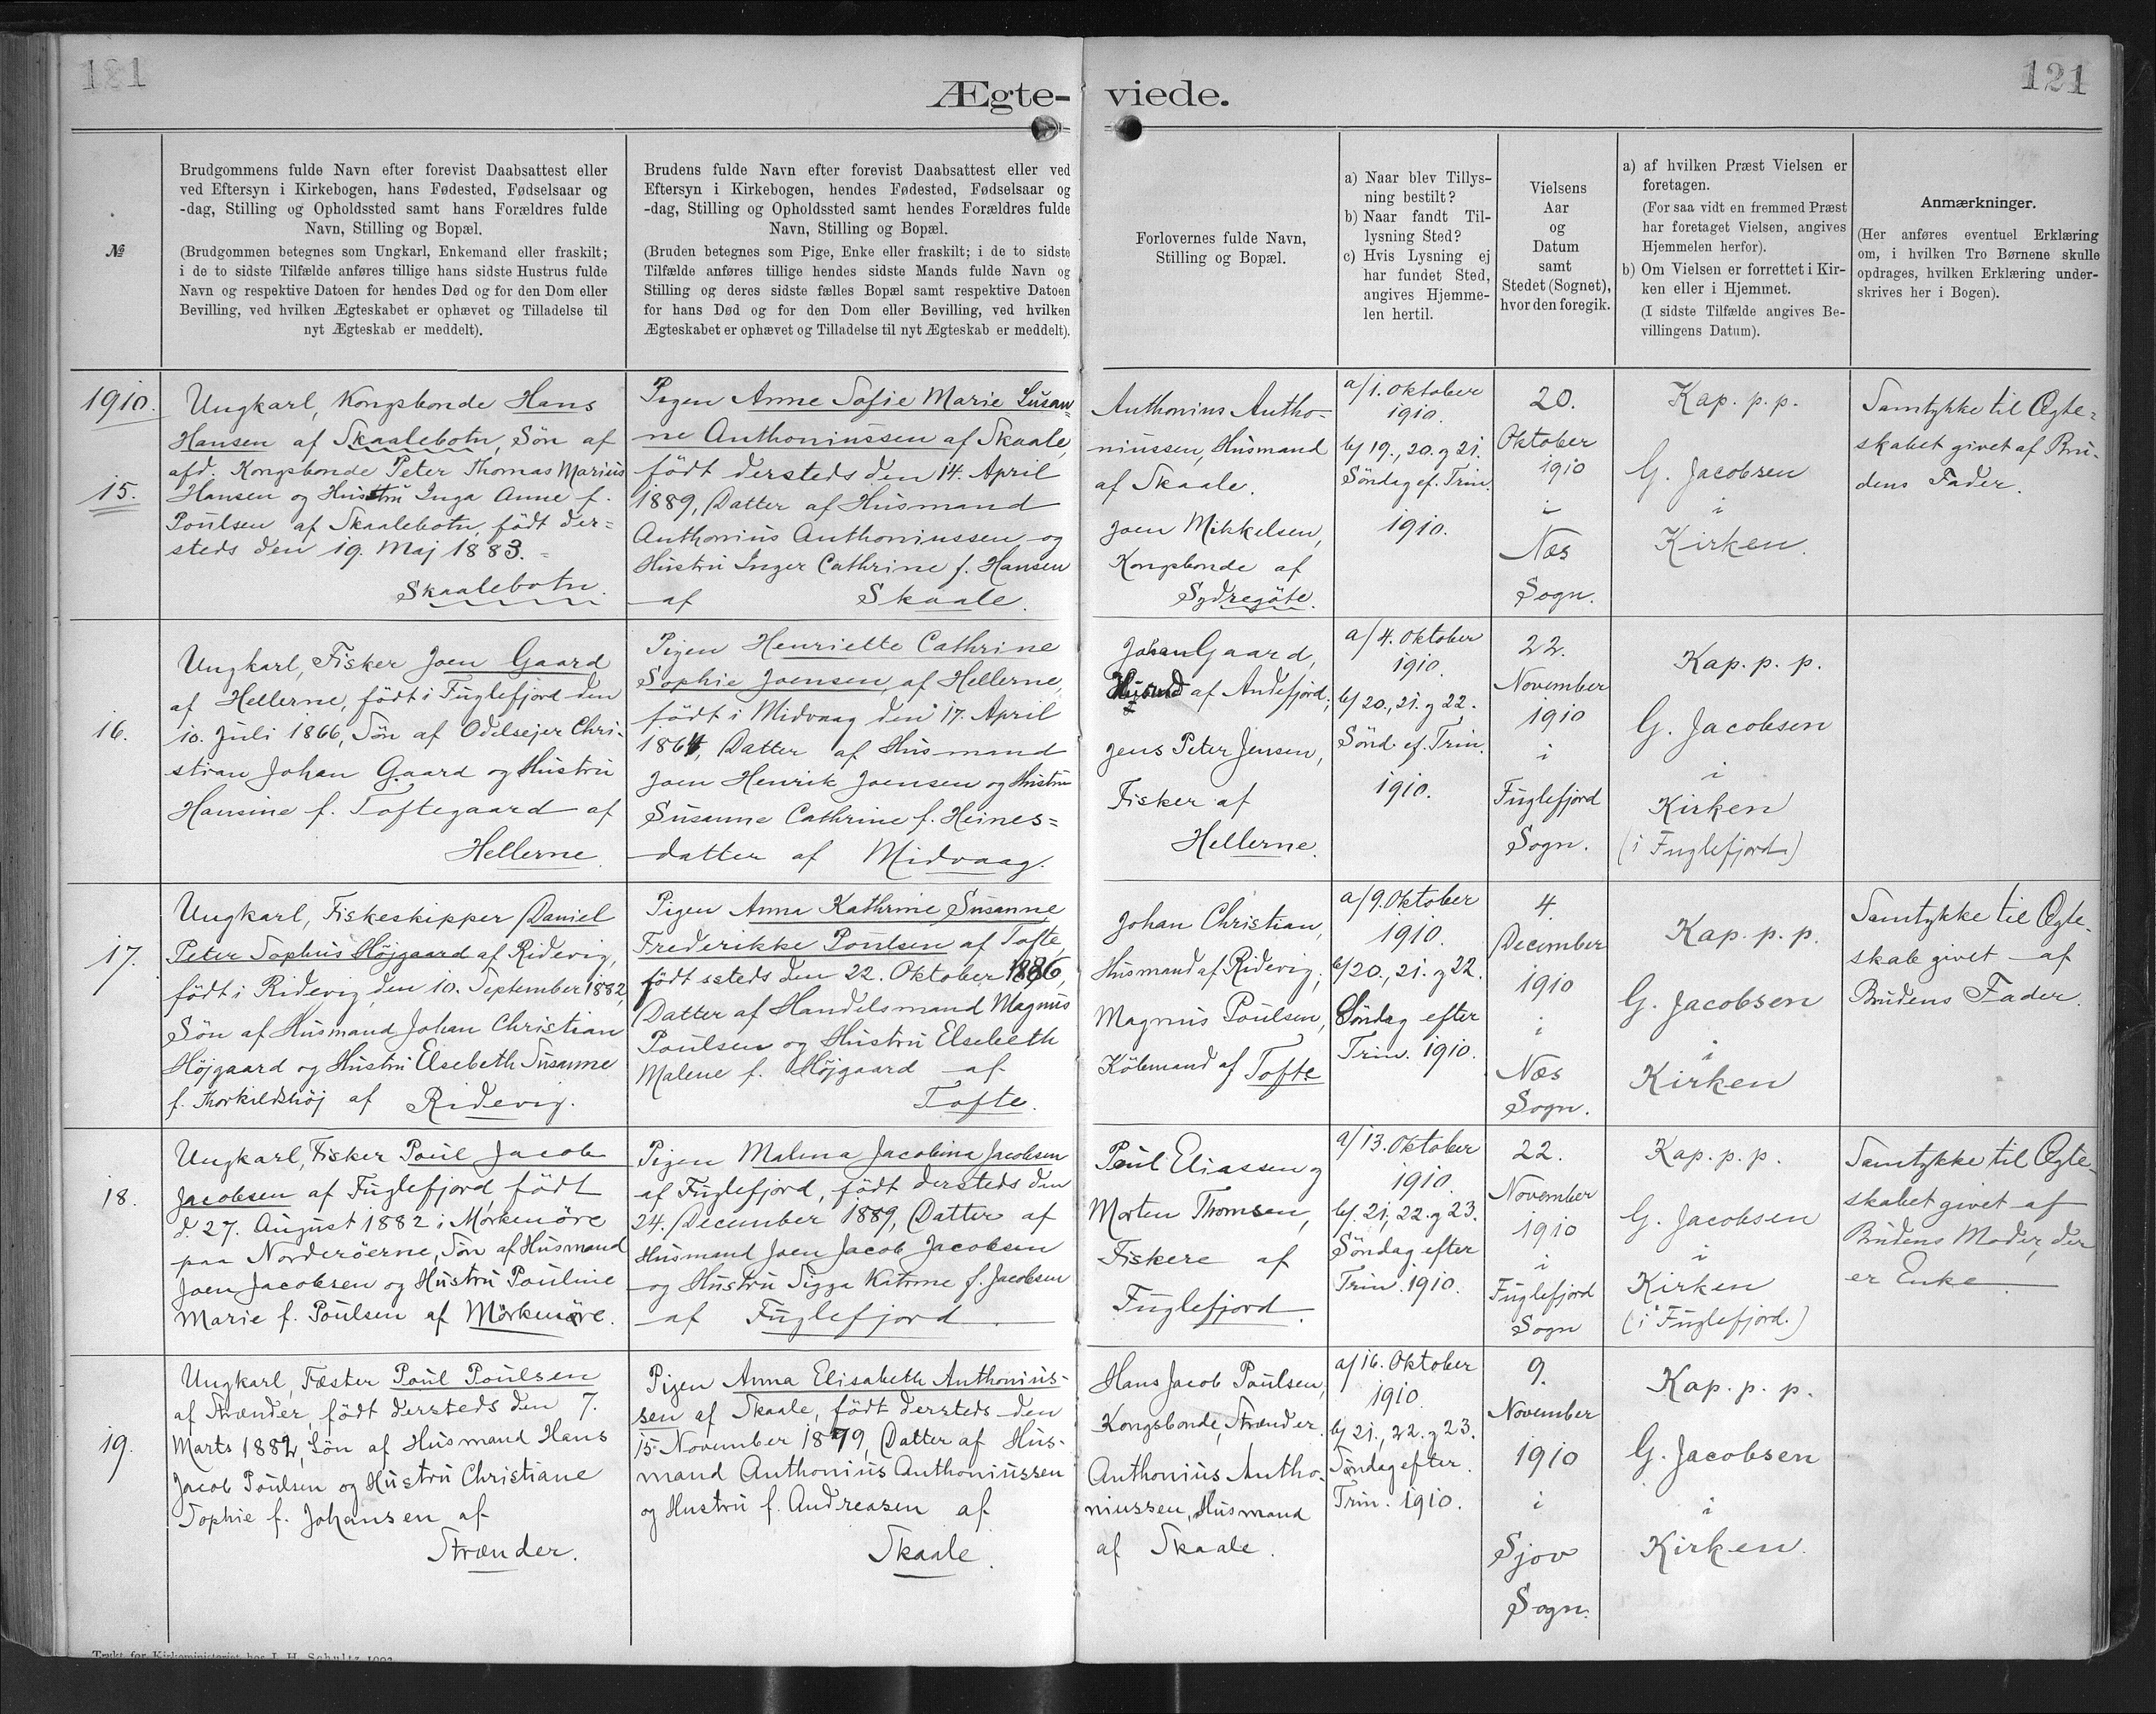 121
121
Ægte-
viede.
№
Brudgommens fulde Navn efter forevist Daabsattest eller
ved Eftersyn i Kirkebogen, hans Fødested, Fødselsaar og
-dag, Stilling og Opholdssted samt hans Forældres fulde
Navn, Stilling og Bopæl.
(Brudgommen betegnes som Ungkarl, Enkemand eller fraskilt;
i de to sidste Tilfælde anføres tillige hans sidste Hustrus fulde
Navn og respektive Datoen for hendes Død og for den Dom eller
Bevilling, ved hvilken Ægteskabet er ophævet og Tilladelse til
nyt Ægteskab er meddelt).
Brudens fulde Navn efter forevist Daabsattest eller ved
Eftersyn i Kirkebogen, hendes Fødested, Fødselsaar og
-dag, Stilling og Opholdssted samt hendes Forældres fulde
Navn, Stilling og Bopæl.
(Bruden betegnes som Pige, Enke eller fraskilt; i de to sidste
Tilfælde anføres tillige hendes sidste Mands fulde Navn og
Stilling og deres sidste fælles Bopæl samt respektive Datoen
for hans Død og for den Dom eller Bevilling, ved hvilken
Ægteskabet er ophævet og Tilladelse til nyt Ægteskab er meddelt).
Forlovernes fulde Navn,
Stilling og Bopæl.
a) Naar blev Tillys-
ning bestilt?
b) Naar fandt Til-
lysning Sted?
c) Hvis Lysning ej
har fundet Sted,
angives Hjemme-
len hertil.
Vielsens
Aar
og
Datum
samt
Stedet (Sognet),
hvor den foregik.
a) af hvilken Præst Vielsen er
foretagen.
(For saa vidt en fremmed Præst
har foretaget Vielsen, angives
Hjemmelen herfor).
b) Om Vielsen er forrettet i Kir-
ken eller i Hjemmet.
(I sidste Tilfælde angives Be-
villingens Datum).
Anmærkninger.
(Her anføres eventuel Erklæring
om, i hvilken Tro Børnene skulle
opdrages, hvilken Erklæring under-
skrives her i Bogen).
1910.
15.
Ungkarl, Kongsbonde Hans
Hansen af Skaalebotn, Søn af
afd. Kongsbonde Peter Thomas Marius
Hansen og Hustru Inga Anne f.
Poulsen af Skaalebotn, født der=
steds den 19. Maj 1883. =
Skaalebotn.
Pigen Anne Sofie Marie Susan=
ne Anthoniussen af Skaale,
født dersteds den 14. April
1889, Datter af Husmand
Anthonius Anthoniussen og
Hustru Inger Cathrine f. Hansen
af Skaale.
Anthonius Antho-
niussen, Husmand
af Skaale.
Joen Mikkelsen,
Kongsbonde af
Sydregöte.
a/1. Oktober
1910.
b/ 19., 20. og 21.
Søndag ef. Trin.
1910.
20.
Oktober
1910
i
Næs
Sogn.
Kap. p. p.
G. Jacobsen
i
Kirken.
Samtykke til Ægte=
skabet givet af Bru-
dens Fader.
16.
Ungkarl, Fisker Joen Gaard
af Hellerne, født i Fuglefjord den
10. Juli 1866, Søn af Odelsejer Chri-
stian Johan Gaard og Hustru
Hansine f. Toftegaard af
Hellerne.
Pigen Henriette Cathrine
Sophie Joensen, af Hellerne,
født i Midvaag den 17. April
Datter af Husmand
Joen Henrik Joensen og Hustru
Susanne Cathrine f. Heines=
datter af Midvaag.
Johan Gaard,
af Andefjord;
Jens Peter Jensen,
Fisker af
Hellerne.
a/ 4. Oktober
1910.
b/ 20., 21. og 22.
Sønd. ef. Trin.
1910.
22.
November
1910
i
Fuglefjord
Sogn.
Kap. p. p.
G. Jacobsen
i
Kirken
(i Fuglefjord)
17.
Ungkarl, Fiskeskipper Daniel
Peter Sophus Højgaard af Ridevig,
født i Ridevig den 10. September 1882,
Søn af Husmand Johan Christian
Højgaard og Hustru Elsebeth Susanne
f. Thorkildshøj af Ridevig.
Pigen Anna Kathrine Susanne
Frederikke Poulsen af Tofte,
født ssteds den 22. Oktober 1886,
Datter af Handelsmand Magnus
Poulsen og Hustru Elsebeth
Malene f. Højgaard af
Tofte.
Johan Christian,
Husmand af Ridevig;
Magnus Poulsen,
Købmand af Tofte
a/9. Oktober
1910.
b/20., 21. og 22.
Søndag efter
Trin. 1910.
4.
December
1910
i
Næs
Sogn.
Kap. p. p.
G. Jacobsen
i
Kirken
Samtykke til Ægte-
skab givet af
Brudens Fader.
18.
Ungkarl, Fisker Poul Jacob
Jacobsen af Fuglefjord født
d. 27. August 1882 i Mørkenøre
paa Norderøerne, Søn af Husmand
Joen Jacobsen og Hustru Pouline
Marie f. Poulsen af Mørkenøre.
Pigen Malena Jacobina Jacobsen
af Fuglefjord, født dersteds den
24. December 1889, Datter af
Husmand Joen Jacob Jacobsen
og Hustru Sigga Katrine f. Jacobsen
af Fuglefjord.
Poul Eliassen og
Morten Thomsen,
Fiskere af
Fuglefjord.
a/ 13. Oktober
1910.
b/. 21, 22. og 23.
Søndag efter
Trin. 1910.
22.
November
1910
i
Fuglefjord
Sogn
Kap. p. p.
G. Jacobsen
i
Kirken
(i Fuglefjord.)
Samtykke til Ægte-
skabet givet af
Brudens Moder, der
er Enke.
19.
Ungkarl, Fæster Poul Poulsen
af Strænder, født dersteds den 7.
Marts 1882, Søn af Husmand Hans
Jacob Poulsen og Hustru Christiane
Sophie f. Johansen af
Strænder.
Pigen Anna Elisabeth Anthonius-
sen af Skaale, født dersteds den
15. November 1879, Datter af Hus-
mand Anthonius Anthoniussen
og Hustru f. Andreasen af
Skaale.
Hans Jacob Poulsen,
Kongsbonde, Strænder.
Anthonius Antho-
niussen, Husmand
af Skaale.
a/ 16. Oktober
1910.
b/ 21., 22. og 23.
Søndag efter
Trin. 1910.
9.
November
1910
i
Sjov
Sogn.
Kap. p. p.
G. Jacobsen
i
Kirken.
Trykt for Kirkeministeriet hos J. H. Schultz